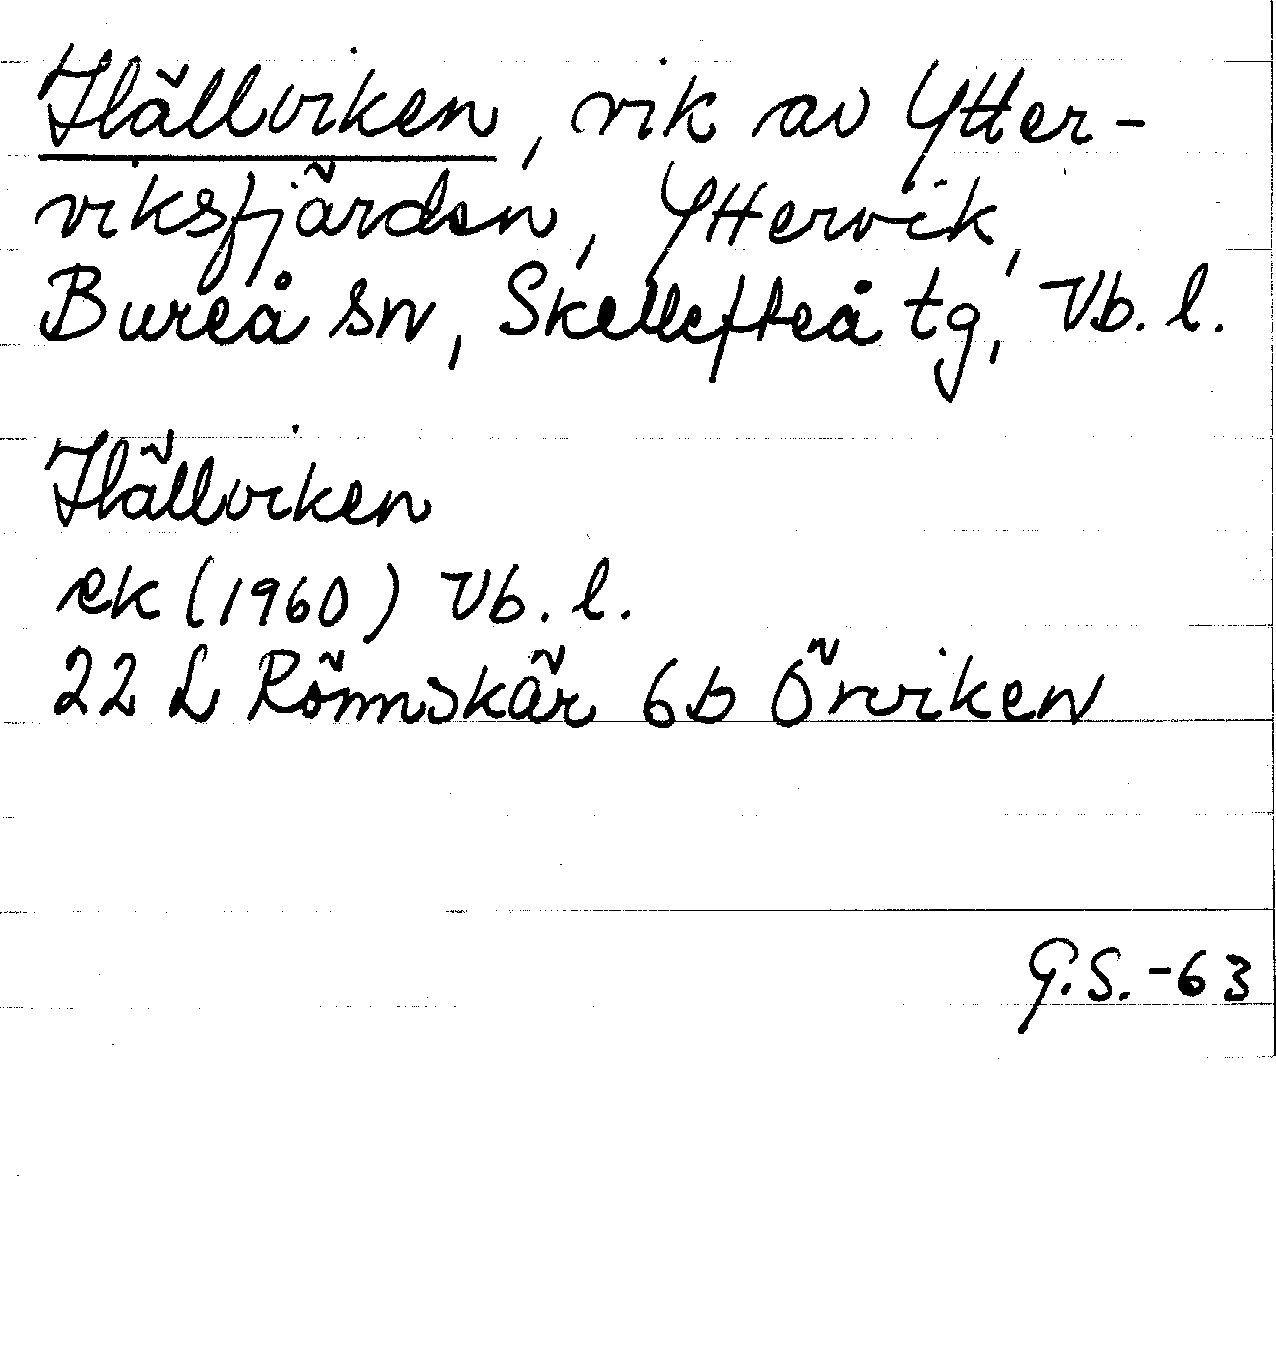 Hällviken, vik av Ytter-
viksfjärden, Yttervik,
Bureå sn, Skellefteå tg, Vb. l.
Hällviken
ek (1960) Vb. l.
22 L Rönnskär 6b Örviken
G.S. -63